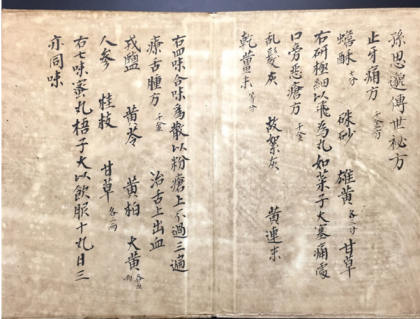 孫思邈傳世秘方
止牙痛方 千金方
蟾酥 七分 硃砂 雄黃 各一寸 甘草
右研極細以飛為丸如菜子大塞痛處
口旁惡瘡方 千金
亂髮灰 故絮灰 黃連末
乾薑末 等分
右四味合味為散以粉瘡上不過三遍
療舌腫方 千金 治舌上出血
戎鹽 黃芩 黃柏 大黃 各五兩
人參 桂枝 甘草 各二兩
右七味蜜丸梧子大以飲服十丸日三
亦同味